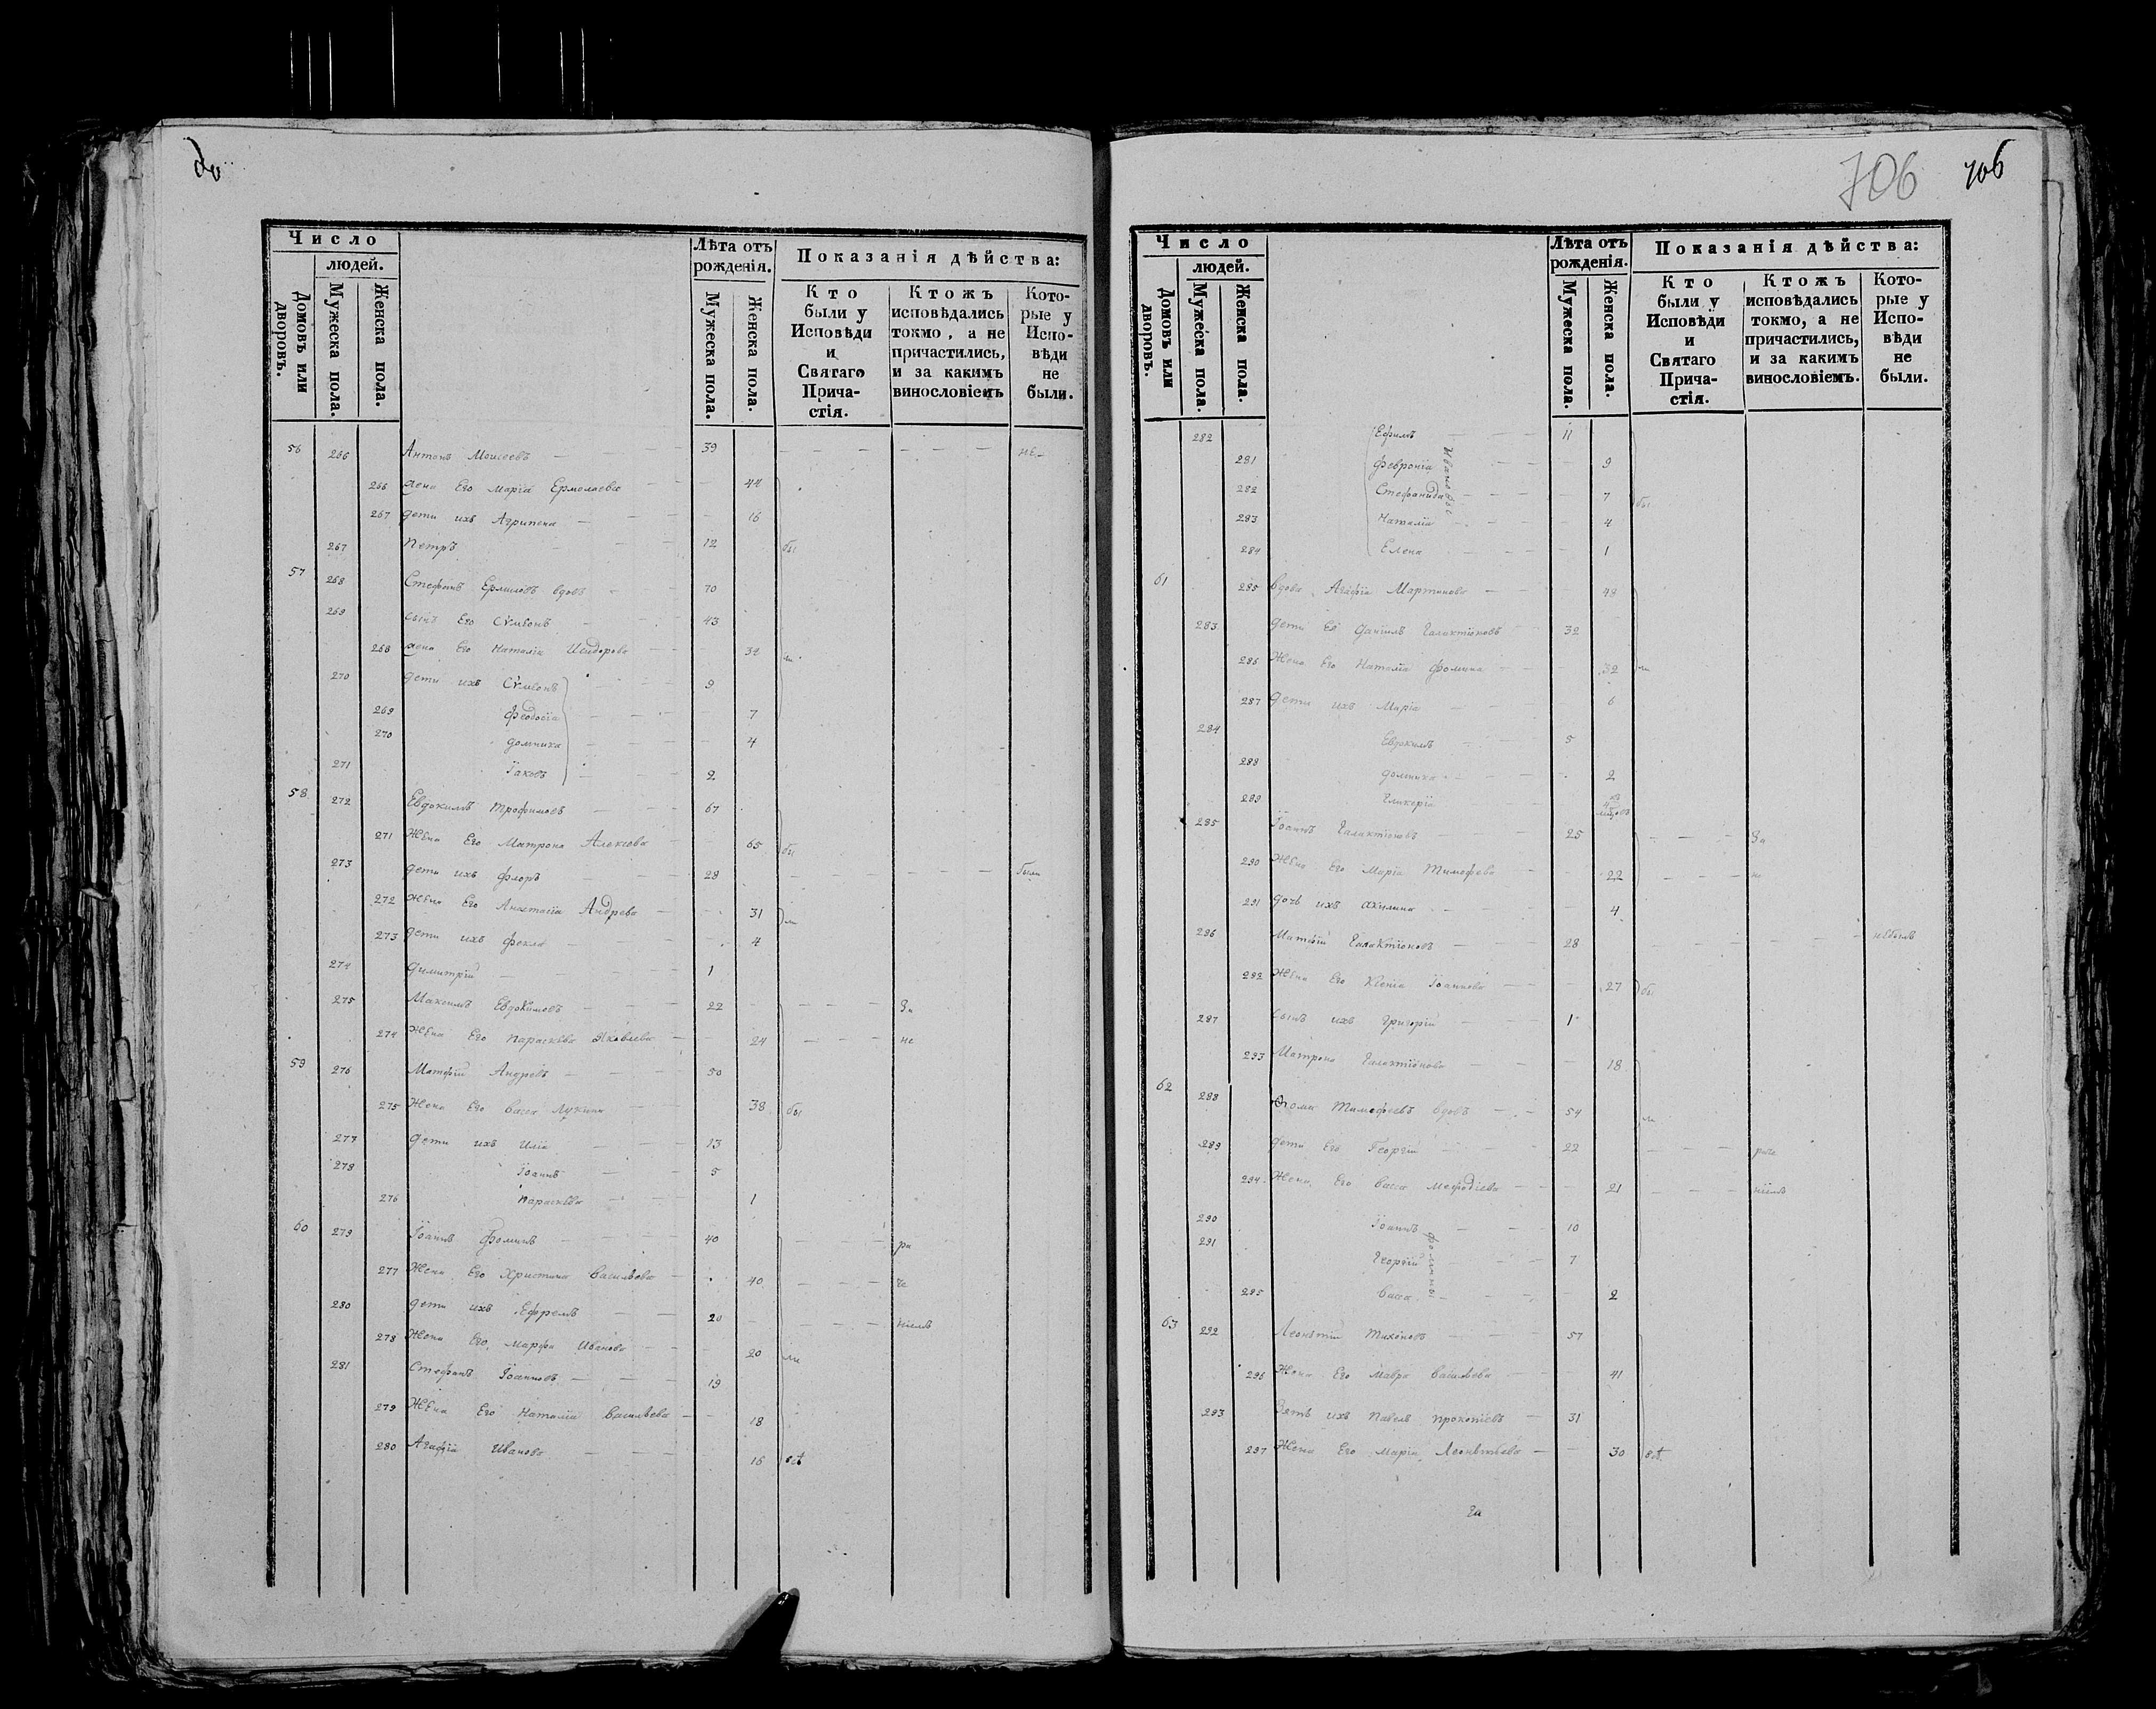 706 706
Число
людей.
Домовъ или дворовъ.
Мужеска пола.
Женска пола.
Лѣта отъ рожденія.
Мужеска пола.
Женска пола.
Показанія дѣйства:
Кто были у Исповѣди и Святаго Прича-стія.
Ктожъ исповѣдались токмо, а не причастились, и за какимъ винословіемъ
Кото-рые у Испо-вѣди не были.
56 266 Антонъ Моисеевъ 39 не
266 жена Его Марія Ермолаева 44
267 дети ихъ Агрипена 16
267 Петръ 12 бы
57 268 Стефанъ Ермиловъ вдовъ 70
269 сынъ Его Сѵмеонъ 43
268 жена Его Наталія Исидорова 32
270 дети ихъ Сѵмеонъ 9
269 Феодосіа 7
270 Домника 4
271 Іаковъ 2
58 272 Евдокимъ Трофимовъ 67
271 Жена Его Матрона Алексева 65 бы
273 дети ихъ Флоръ 29 были
272 Жена Его Анастасіа Андрева 31 ли
273 дети ихъ Фекла 4
274 Димитрій 1
275 Максимъ Евдокимовъ 22 За
274 Жена Его Параскѣва Яковлева 24 не
59 276 Матфій Андревъ 50
275 Жена Его Васса Лукина 38 бы
277 дети ихъ Иліа 13
278 Іоаннъ 5
276 Параскѣва 1
60 279 Іоаннъ Фоминъ 40 ра
277 Жена Его Христина Васильева 40 че
280 дети ихъ Ефремъ 20 ніемъ
278 Жена Его Марфа Иванова 20 ли
281 Стефанъ Іоанновъ 19
279 Жена Его Наталіа Васильева 18
280 Агафіа Иванова 16 всѣ
Число
людей.
Домовъ или дворовъ.
Мужеска пола.
Женска пола.
Лѣта отъ рожденія.
Мужеска пола.
Женска пола.
Показанія дѣйства:
Кто были у Исповѣди и Святаго Прича-стія.
Ктожъ исповѣдались токмо, а не причастились, и за какимъ винословіемъ.
Кото-рые у Испо-вѣди не были.
282 Ефимъ 11
281 Февроніа 9
282 Стефанида 7 бы
283 Наталіа 4
284 Елена 1
61 285 вдова Агафіа Мартинова 48
283 дети Её Даніилъ Галактіоновъ 32
286 Жена Его Наталіа Фомина 32 ли
287 дети ихъ Маріа 6
284 Евдокимъ 5
288 Домника 2
289 Гликеріа
285 Іоаннъ Галактіоновъ 25 За
290 Жена Его Маріа Тимофева 22 не
291 дочь ихъ Акулина 4
286 Матвій Галактіоновъ 28 небылъ
292 Жена Его Ксеніа Іоаннова 27 бы
287 Сынъ ихъ Григорій 1
293 Матрона Галактіонова 18
62 288 Фома Тимофеевъ вдовъ 54 ли
289 дети Его Георгій 22
294 Жена Его Васса Мефодіева 21 ніемъ
290 Іоаннъ 10
291 Георгій 7
295 Васса 2
63 292 Леонтій Тихоновъ 57
296 Жена Его Мавра Васильева 41
293 Зять ихъ Павелъ Прокопіевъ 31
297 Жена Его Маріа Леонтьева 30 всѣ